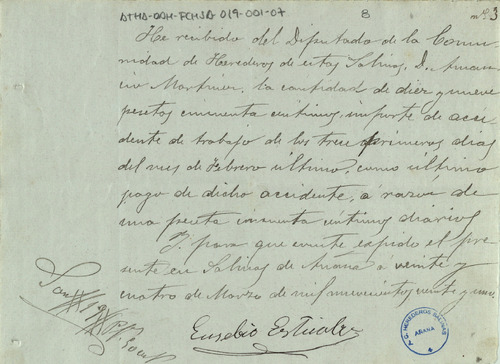 ATHA-DAH-FCHSA-019-001-07
8
nº 3
He recibido del Diputado de la Comu-
nidad de Herederos de estas Salinas, D. Amancio
Martinez, la cantidad de diez y nueve
pesetas cincuenta centimos, importe de acci-
dente de trabajo de los trece primeros dias
del mes de Febrero último, como último
pago de dicho accidente, á razon de
una peseta cincuenta céntimos diarios
Y para que conste expido el pre-
sente en Salinas de Añana á veinte y
cuatro de Marzo de mil novecientos veinte y uno.
Son
Eusebio
HEREDEROS SALINAS
AÑANA